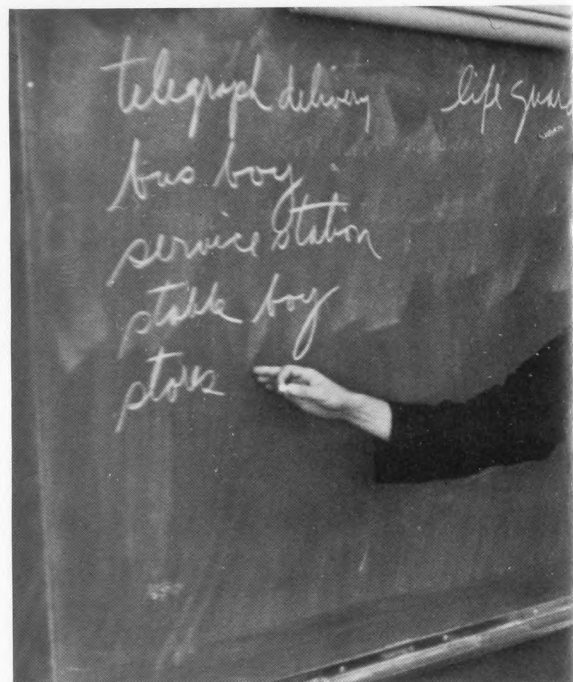 telegraph delivery life guard
bus boy
service station
stable boy
stores